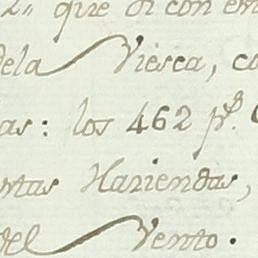 2,, que di con
dela Viesca, co
as: los 462 p.s
ntas Hariendas,
del Vento.